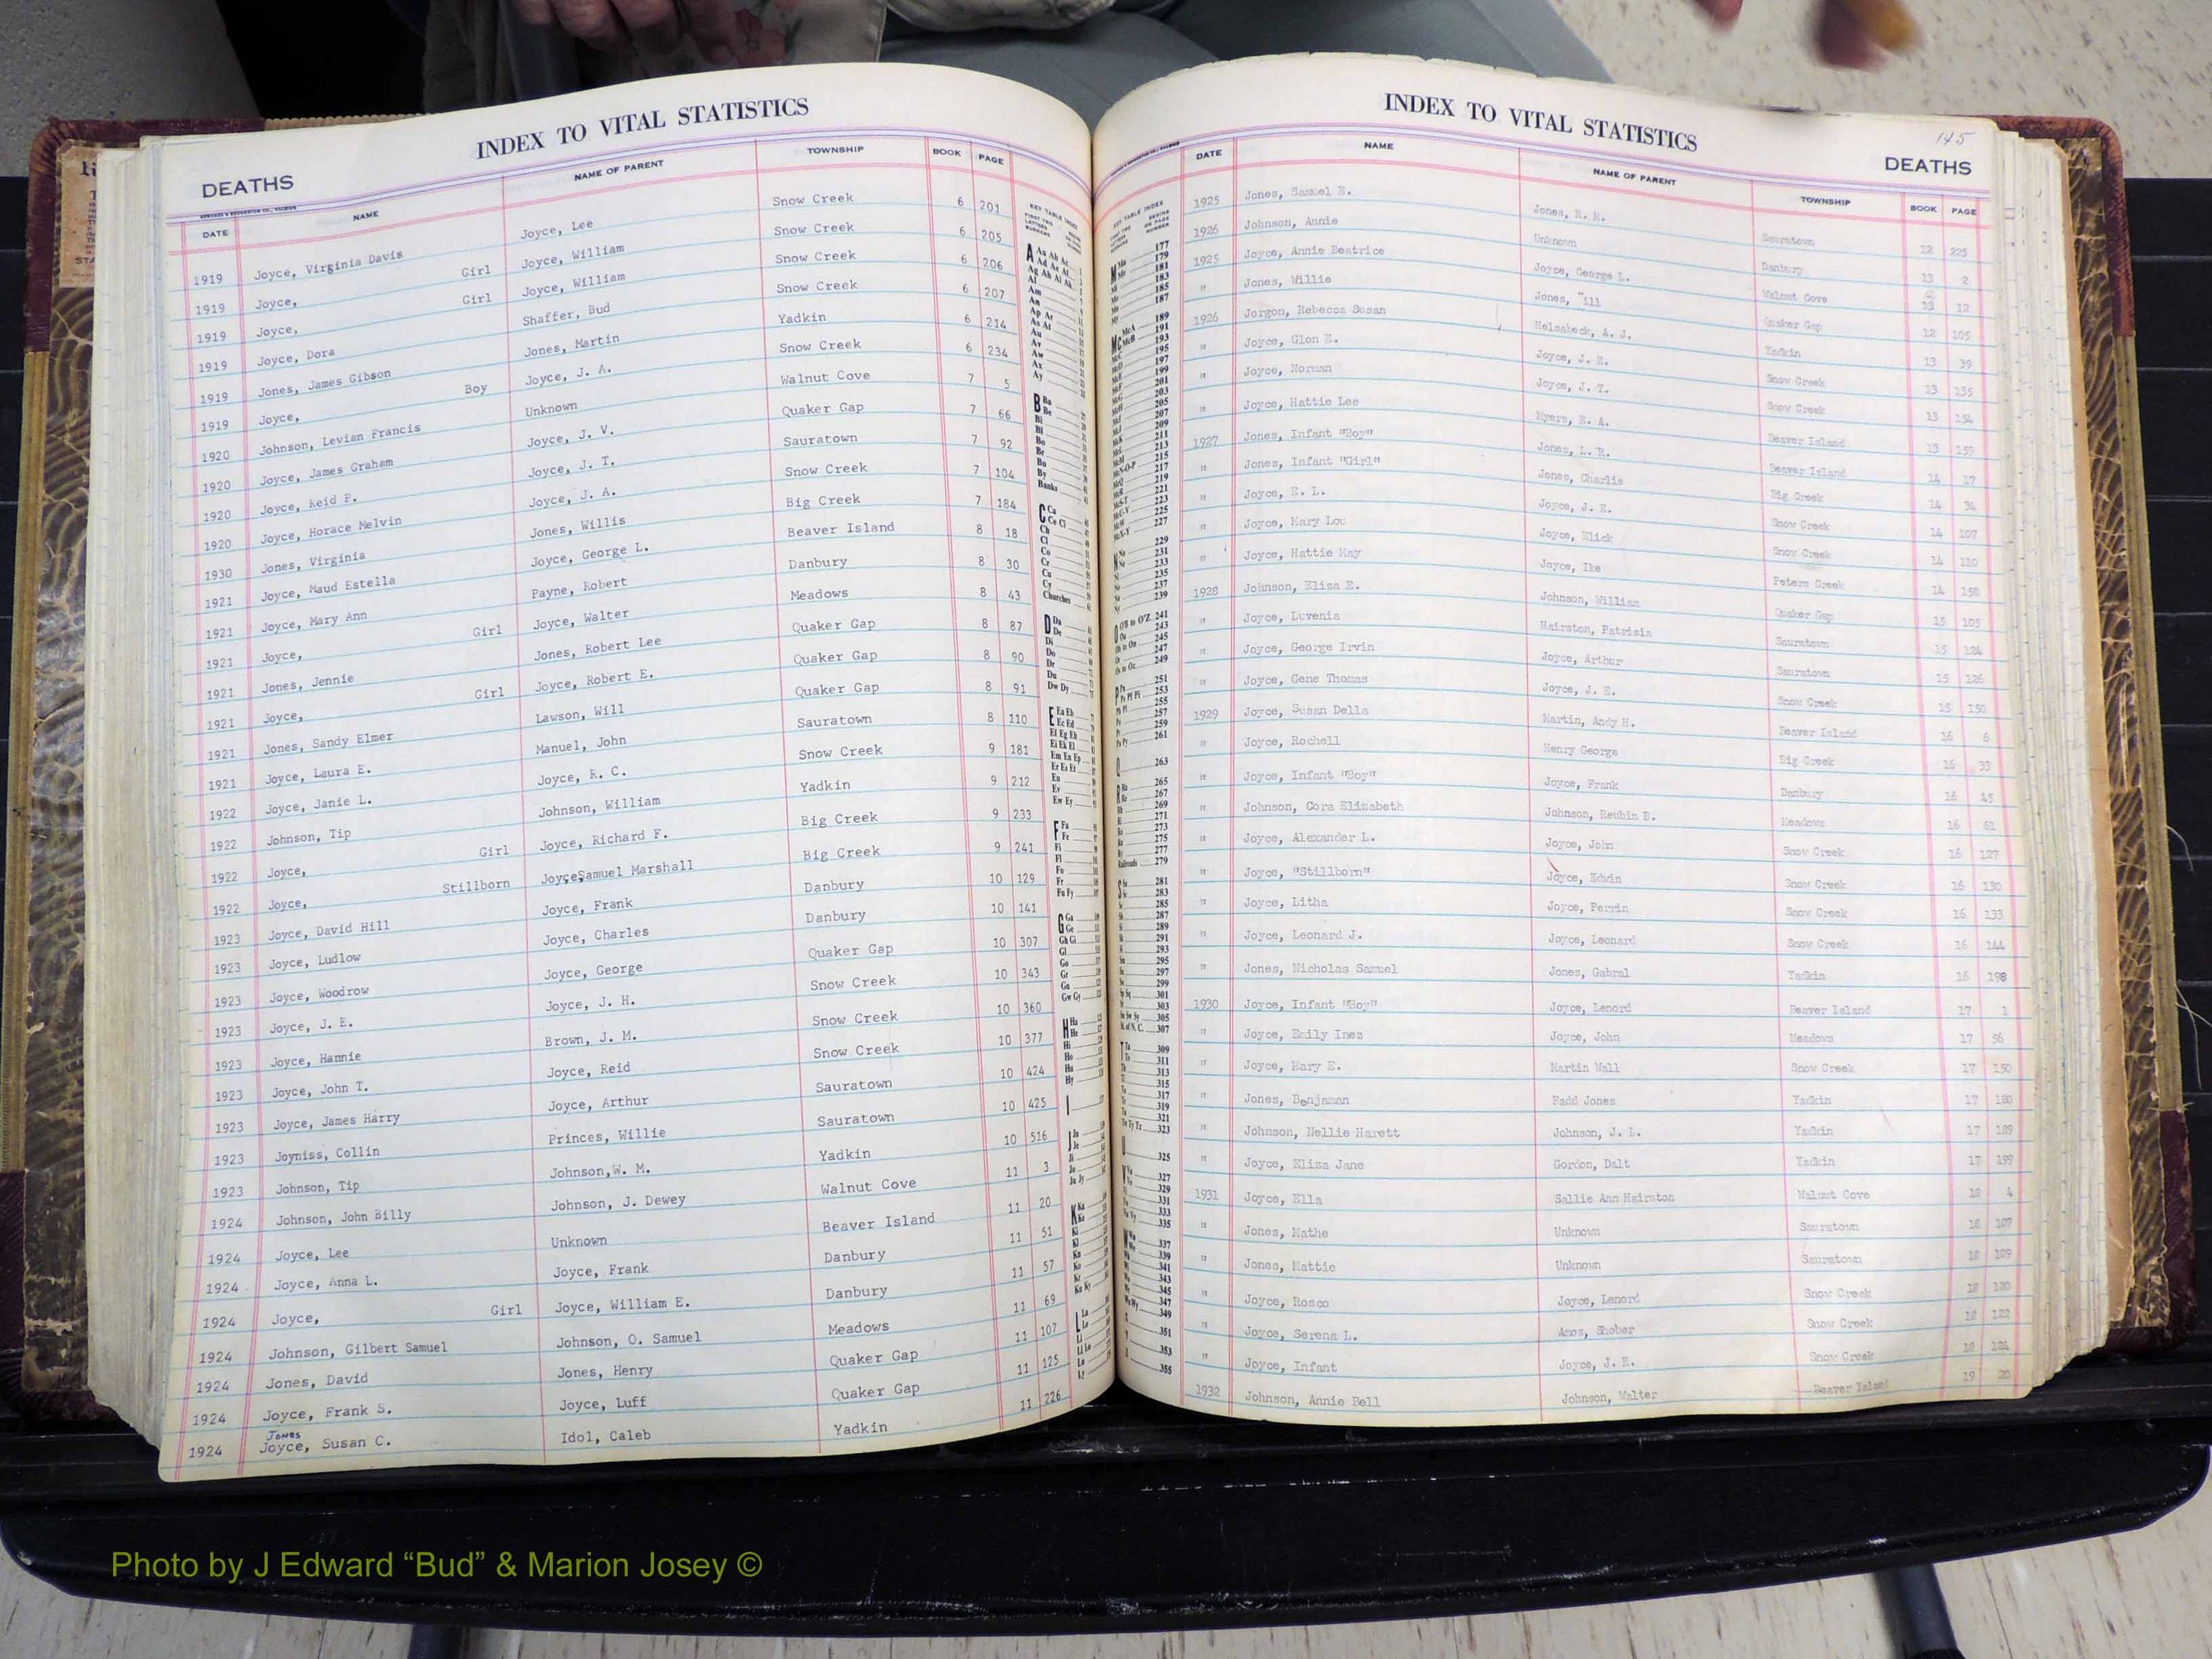 INDEX TO VITAL STATISTICS
DEATHS
DATE NAME NAME OF PARENT TOWNSHIP BOOK PAGE
1919 Joyce, Virginia Davis Joyce, Lee Snow Creek 6 201
1919 Joyce, Girl Joyce, William Snow Creek 6 205
1919 Joyce, Girl Joyce, William Snow Creek 6 206
1919 Joyce, Dora Shaffer, Bud Snow Creek 6 207
1919 Jones, James Gibson Jones, Martin Yadkin 6 214
1919 Joyce, Boy Joyce, J. A. Snow Creek 6 234
1920 Johnson, Levian Francis Unknown Walnut Cove 7 5
1920 Joyce, James Graham Joyce, J. V. Quaker Gap 7 66
1920 Joyce, Reid P. Joyce, J. T. Sauratown 7 92
1920 Joyce, Horace Melvin Joyce, J. A. Snow Creek 7 104
1930 Jones, Virginia Jones, Willis Big Creek 7 184
1921 Joyce, Maud Estella Joyce, George L. Beaver Island 8 18
1921 Joyce, Mary Ann Payne, Robert Danbury 8 30
1921 Joyce, Girl Joyce, Walter Meadows 8 43
1921 Jones, Jennie Jones, Robert Lee Quaker Gap 8 87
1921 Joyce, Girl Joyce, Robert E. Quaker Gap 8 90
1921 Jones, Sandy Elmer Lawson, Will Quaker Gap 8 91
1921 Joyce, Laura E. Manuel, John Sauratown 8 110
1922 Joyce, Janie L. Joyce, R. C. Snow Creek 9 181
1922 Johnson, Tip Johnson, William Yadkin 9 212
1922 Joyce, Girl Joyce, Richard F. Big Creek 9 233
1922 Joyce, Stillborn Joyce,Samuel Marshall Big Creek 9 241
1923 Joyce, David Hill Joyce, Frank Danbury 10 129
1923 Joyce, Ludlow Joyce, Charles Danbury 10 141
1923 Joyce, Woodrow Joyce, George Quaker Gap 10 307
1923 Joyce, J. E. Joyce, J. H. Snow Creek 10 343
1923 Joyce, Hannie Brown, J. M. Snow Creek 10 360
1923 Joyce, John T. Joyce, Reid Snow Creek 10 377
1923 Joyce, James Harry Joyce, Arthur Sauratown 10 424
1923 Joyniss, Collin Princes, Willie Sauratown 10 425
1923 Johnson, Tip Johnson,W. M. Yadkin 10 516
1924 Johnson, John Billy Johnson, J. Dewey Walnut Cove 11 3
1924 Joyce, Lee Unknown Beaver Island 11 20
1924 Joyce, Anna L. Joyce, Frank Danbury 11 51
1924 Joyce, Girl Joyce, William E. Danbury 11 57
1924 Johnson, Gilbert Samuel Johnson, O. Samuel Meadows 11 69
1924 Jones, David Jones, Henry Quaker Gap 11 107
1924 Joyce, Frank S. Joyce, Luff Quaker Gap 11 125
JONES
1924 Joyce, Susan C. Idol, Caleb Yadkin 11 226
INDEX TO VITAL STATISTICS
145
DEATHS
DATE NAME NAME OF PARENT TOWNSHIP BOOK PAGE
1925 Jones, Samuel E. Jones, R. H. Sauratown 12 225
1926 Johnson, Annie Unknown Danbury 13 2
1925 Joyce, Annie Beatrice Joyce, George L. Walnut Cove 13 12
" Jones, Willie Jones, "ill Quaker Gap 12 105
1926 Jorgon, Rebecca Susan Helsabeck, A. J. Yadkin 13 39
" Joyce, Glon E. Joyce, J. E. Snow Creek 13 135
" Joyce, Norman Joyce, J. T. Snow Creek 13 154
" Joyce, Hattie Lee Myers, E. A. Beaver Island 13 159
1927 Jones, Infant "Boy" Jones, L. R. Beaver Island 14 17
" Jones, Infant "Girl" Jones, Charlie Big Creek 14 34
" Joyce, E. L. Joyce, J. E. Snow Creek 14 107
" Joyce, Mary Lou Joyce, Elick Snow Creek 14 110
" Joyce, Hattie May Joyce, Ike Peters Creek 14 158
1928 Johnson, Eliza E. Johnson, William Quaker Gap 15 105
" Joyce, Luvenia Hairston, Patrisia Sauratown 15 124
" Joyce, George Irvin Joyce, Arthur Sauratown 15 126
" Joyce, Gene Thomas Joyce, J. E. Snow Creek 15 150
1929 Joyce, Susan Della Martin, Andy H. Beaver Island 16 6
" Joyce, Rochell Henry George Big Creek 16 33
" Joyce, Infant "Boy" Joyce, Frank Danbury 16 45
" Johnson, Cora Elizabeth Johnson, Reubin B. Meadows 16 61
" Joyce, Alexander L. Joyce, John Snow Creek 16 127
" Joyce, "Stillborn" Joyce, Edwin Snow Creek 16 130
" Joyce, Litha Joyce, Perrin Snow Creek 16 133
" Joyce, Leonard J. Joyce, Leonard Snow Creek 16 144
" Jones, Nicholas Samuel Jones, Gabral Yadkin 16 198
1930 Joyce, Infant "Boy" Joyce, Lenord Beaver Island 17 1
" Joyce, Emily Inez Joyce, John Meadows 17 56
" Joyce, Mary E. Martin Wall Snow Creek 17 150
" Jones, Benjaman Fadd Jones Yadkin 17 180
" Johnson, Nellie Harett Johnson, J. L. Yadkin 17 189
" Joyce, Eliza Jane Gordon, Dalt Yadkin 17 199
1931 Joyce, Ella Sallie Ann Hairston Walnut Cove 18 4
" Jones, Mathe Unknown Sauratown 18 107
" Jones, Mattie Unknown Sauratown 18 109
" Joyce, Rosco Joyce, Lenord Snow Creek 18 120
" Joyce, Serena L. Amos, Shober Snow Creek 18 122
" Joyce, Infant Joyce, J. R. Snow Creek 18 124
1932 Johnson, Annie Bell Johnson, Walter Beaver Island 19 20
Photo by J Edward “Bud” & Marion Josey ©